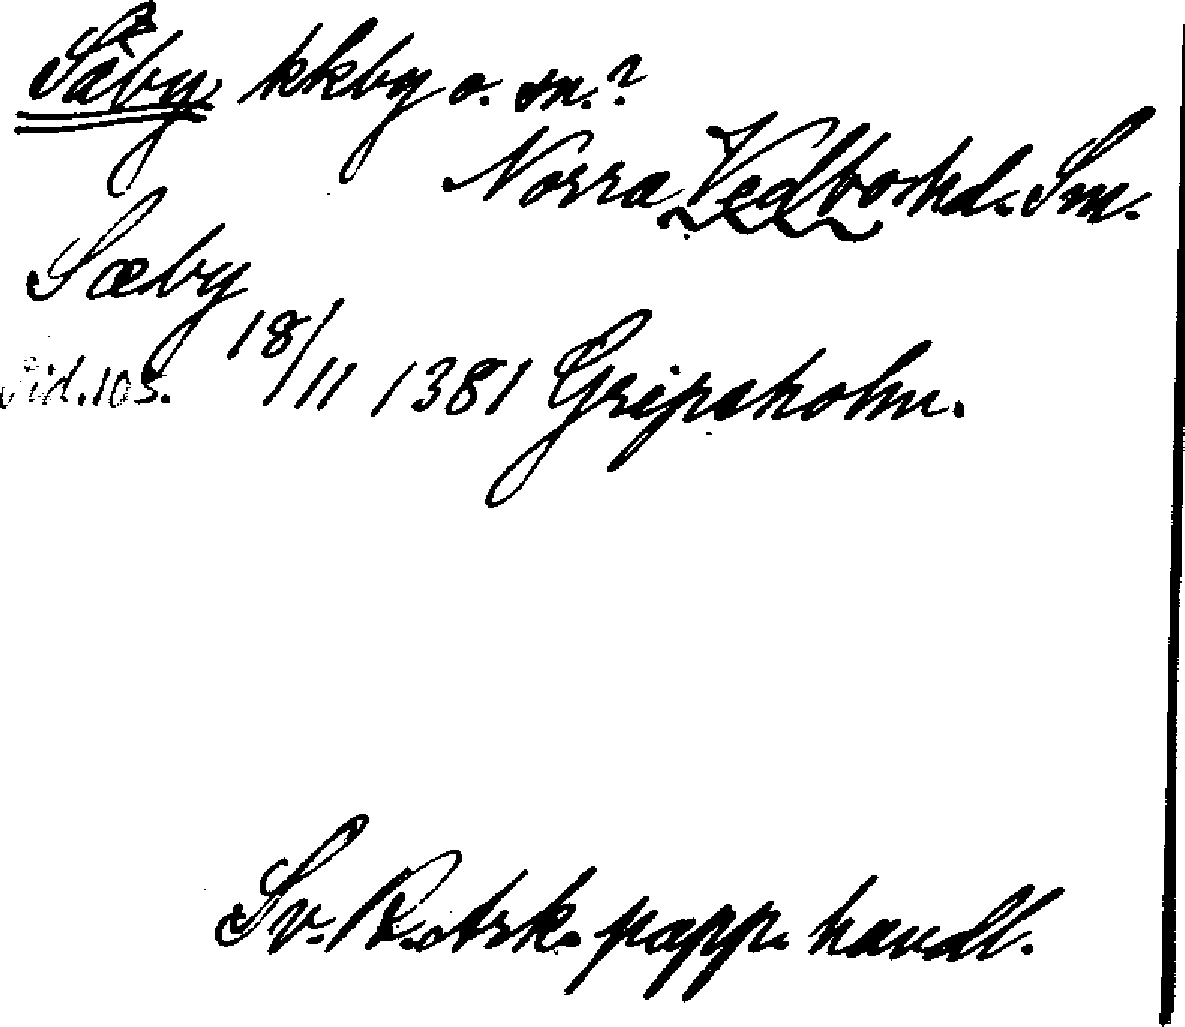 Säby, kkby o. sn.?
Norra Vedbo hd. Sm.
Sæby
Sid. 103. 18/11 1381 Gripsholm.
Sv. R. Ark. papp. handl.